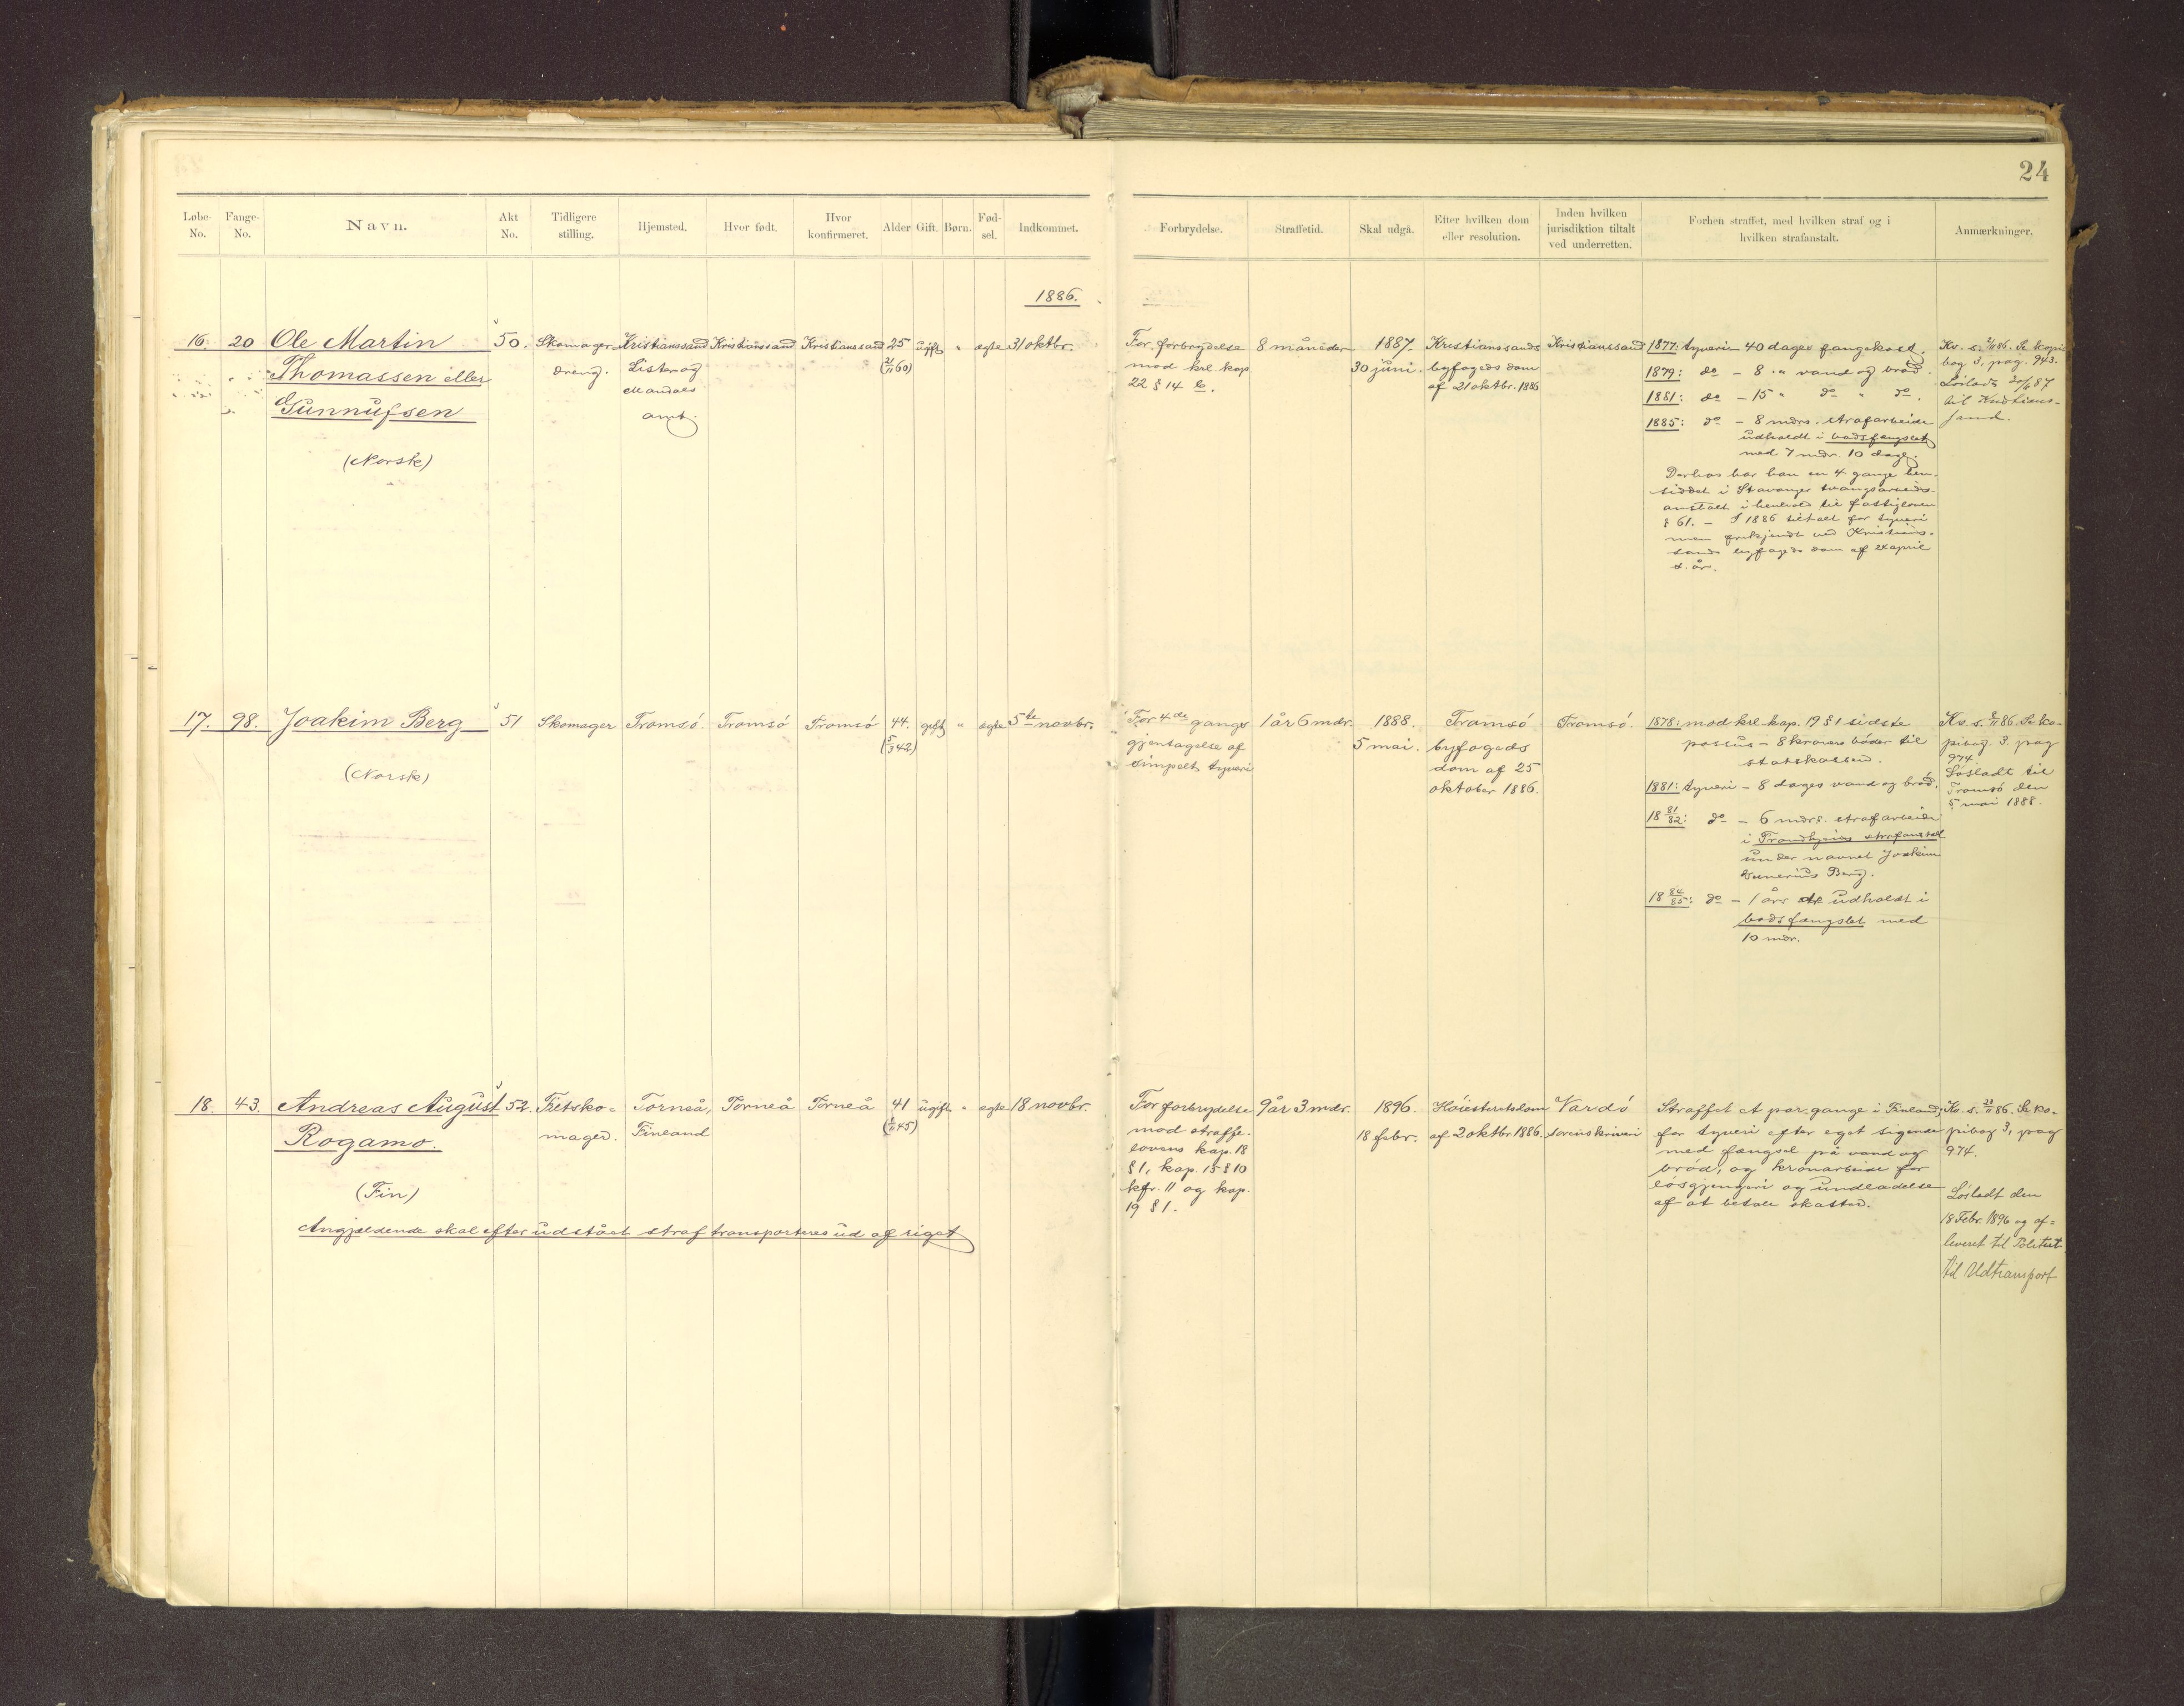 24
Løbe-No. Fange-No. Navn. Akt No. Tidligere stilling. Hjemsted. Hvor født. Hvor konfirmeret. Alder Gift. Børn. Fød-sel. Indkommet. Forbrydelse. Straffetid. Skal udgå. Efter hvilken dom eller resolution. Inden hvilken jurisdiktion tiltalt ved underretten. Forhen straffet, med hvilken straf og i hvilken strafanstalt. Anmærkninger.
1886.
16. 20 Ole Martin
Thomassen eller
Gunnufsen
(Norsk)
50.
Skomager
dreng.
Kristianssand
Lister og
Mandals
amt.
Kristianssand
Kristianssand
25
(21/11 60)
ugift " egte 31 oktbr.
For forbrydelse
mod krl kap
22 § 14 b.
8 måneder
1887.
30 juni.
Kristianssands
byfogeds dom
af 21 oktbr. 1886
Kristianssand
1877: tyveri – 40 dages fangekost.
1879: do – 8 " vand og brød.
1881: do – 15 " do " do.
1885: do – 8 mdrs. strafarbeide
udholdt i bodsfængslet
med 7 mdr. 10 dage.
Derhos har han en 4 gange hen-
siddet i Stavanger tvangsarbeids-
anstalt i henhold til fattigloven
§ 61. – I 1886 tiltalt for tyveri
men frikjendt ved Kristians-
sands byfogeds dom af 24 april
d. år.
Kv. s. 2/11 86. Se kopi
bog 3, pag. 943.
Løsladt 30/6 87
til Kristians-
sand.
17. 98. Joakim Berg
(Norsk)
51
Skomager
Tromsö.
Tromsö
Tromsö
44.
(5/3 42)
gift " egte 5te novbr.
For 4de gangs
gjentagelse af
simpelt tyveri
1 år 6 mdr.
1888.
5 mai.
Tromsö
byfogeds
dom af 25
oktober 1886.
Tromsö.
1878: mod krl kap. 19 § 1 sidste
passus – 8 kroners böder til
statskassen.
1881: tyveri – 8 dages vand og bröd.
18 81/82: do – 6 mdrs. strafarbeide
i Trondhjems strafanstalt
under navnet Joakim
Berg.
18 84/85: do – 1 års str. udholdt i
bodsfængslet med
10 mdr.
Kv. s. 8/11 86. Se ko-
pibog. 3. pag
974
Løsladt til
Tromsö den
5 mai 1888.
18. 43. Andreas August
Rogamo.
(Fin)
Angjældende skal efter udstået straf transporteres ud af riget
52.
Filtsko-
mager.
Torneå,
Finland
Torneå
Torneå
41
ugift " egte 18 novbr.
For forbrydelse
mod straffe-
lovens kap. 18
§ 1, kap. 15 § 10
kfr. 11 og kap.
19 § 1.
9 år 3 mdr.
1896.
18 febr.
Höiesteretsdom
af 2 oktbr. 1886.
Vardö
sorenskriveri
Straffet et par gange i Finland
for tyveri efter eget sigende
med fængsel på vand og
bröd, og kronarbeide for
lösgjængeri og undladelse
af at betale skatter.
Kv. s. 23/11 86. Se ko-
pibog 3, pag
974.
Løsladt den
18 Febr. 1896 og af-
leveret til Politiet
til Udtransport